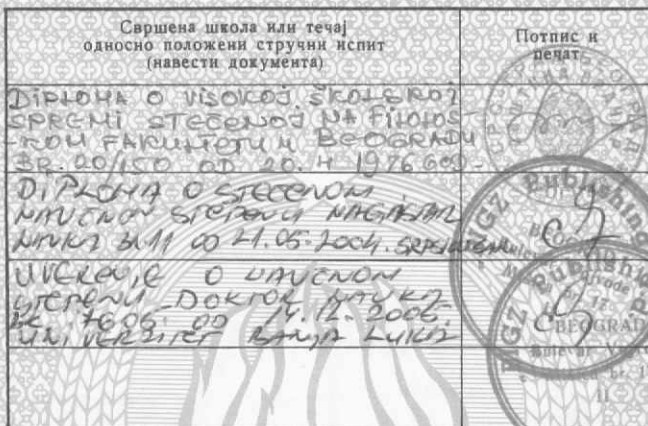 Свршена школа или течај
односно положени стручни испит
(навести документа)
Потпис и
печат
DIPLOMA O VISOKOJ ŠKOLSKOJ
SPREMI STEČENOJ NA FILOLOŠ-
-KOM FAKULTETU U BEOGRADU
BR. 20/150 OD 20. 4 1976 GOD-
DIPLOMA O STEČENOM
NAUČNOM STEPENU MAGISTAR
NAUKA 3411 OD 21.05.2004.
UVERENJE O NAUČNOM
STEPENU - DOKTOR NAUKA-
BR. 7606. OD 14.12.2006.
UNIVERZITET BANJA LUKA
NGZ Publishing
NGZ Publishing
BEOGRAD